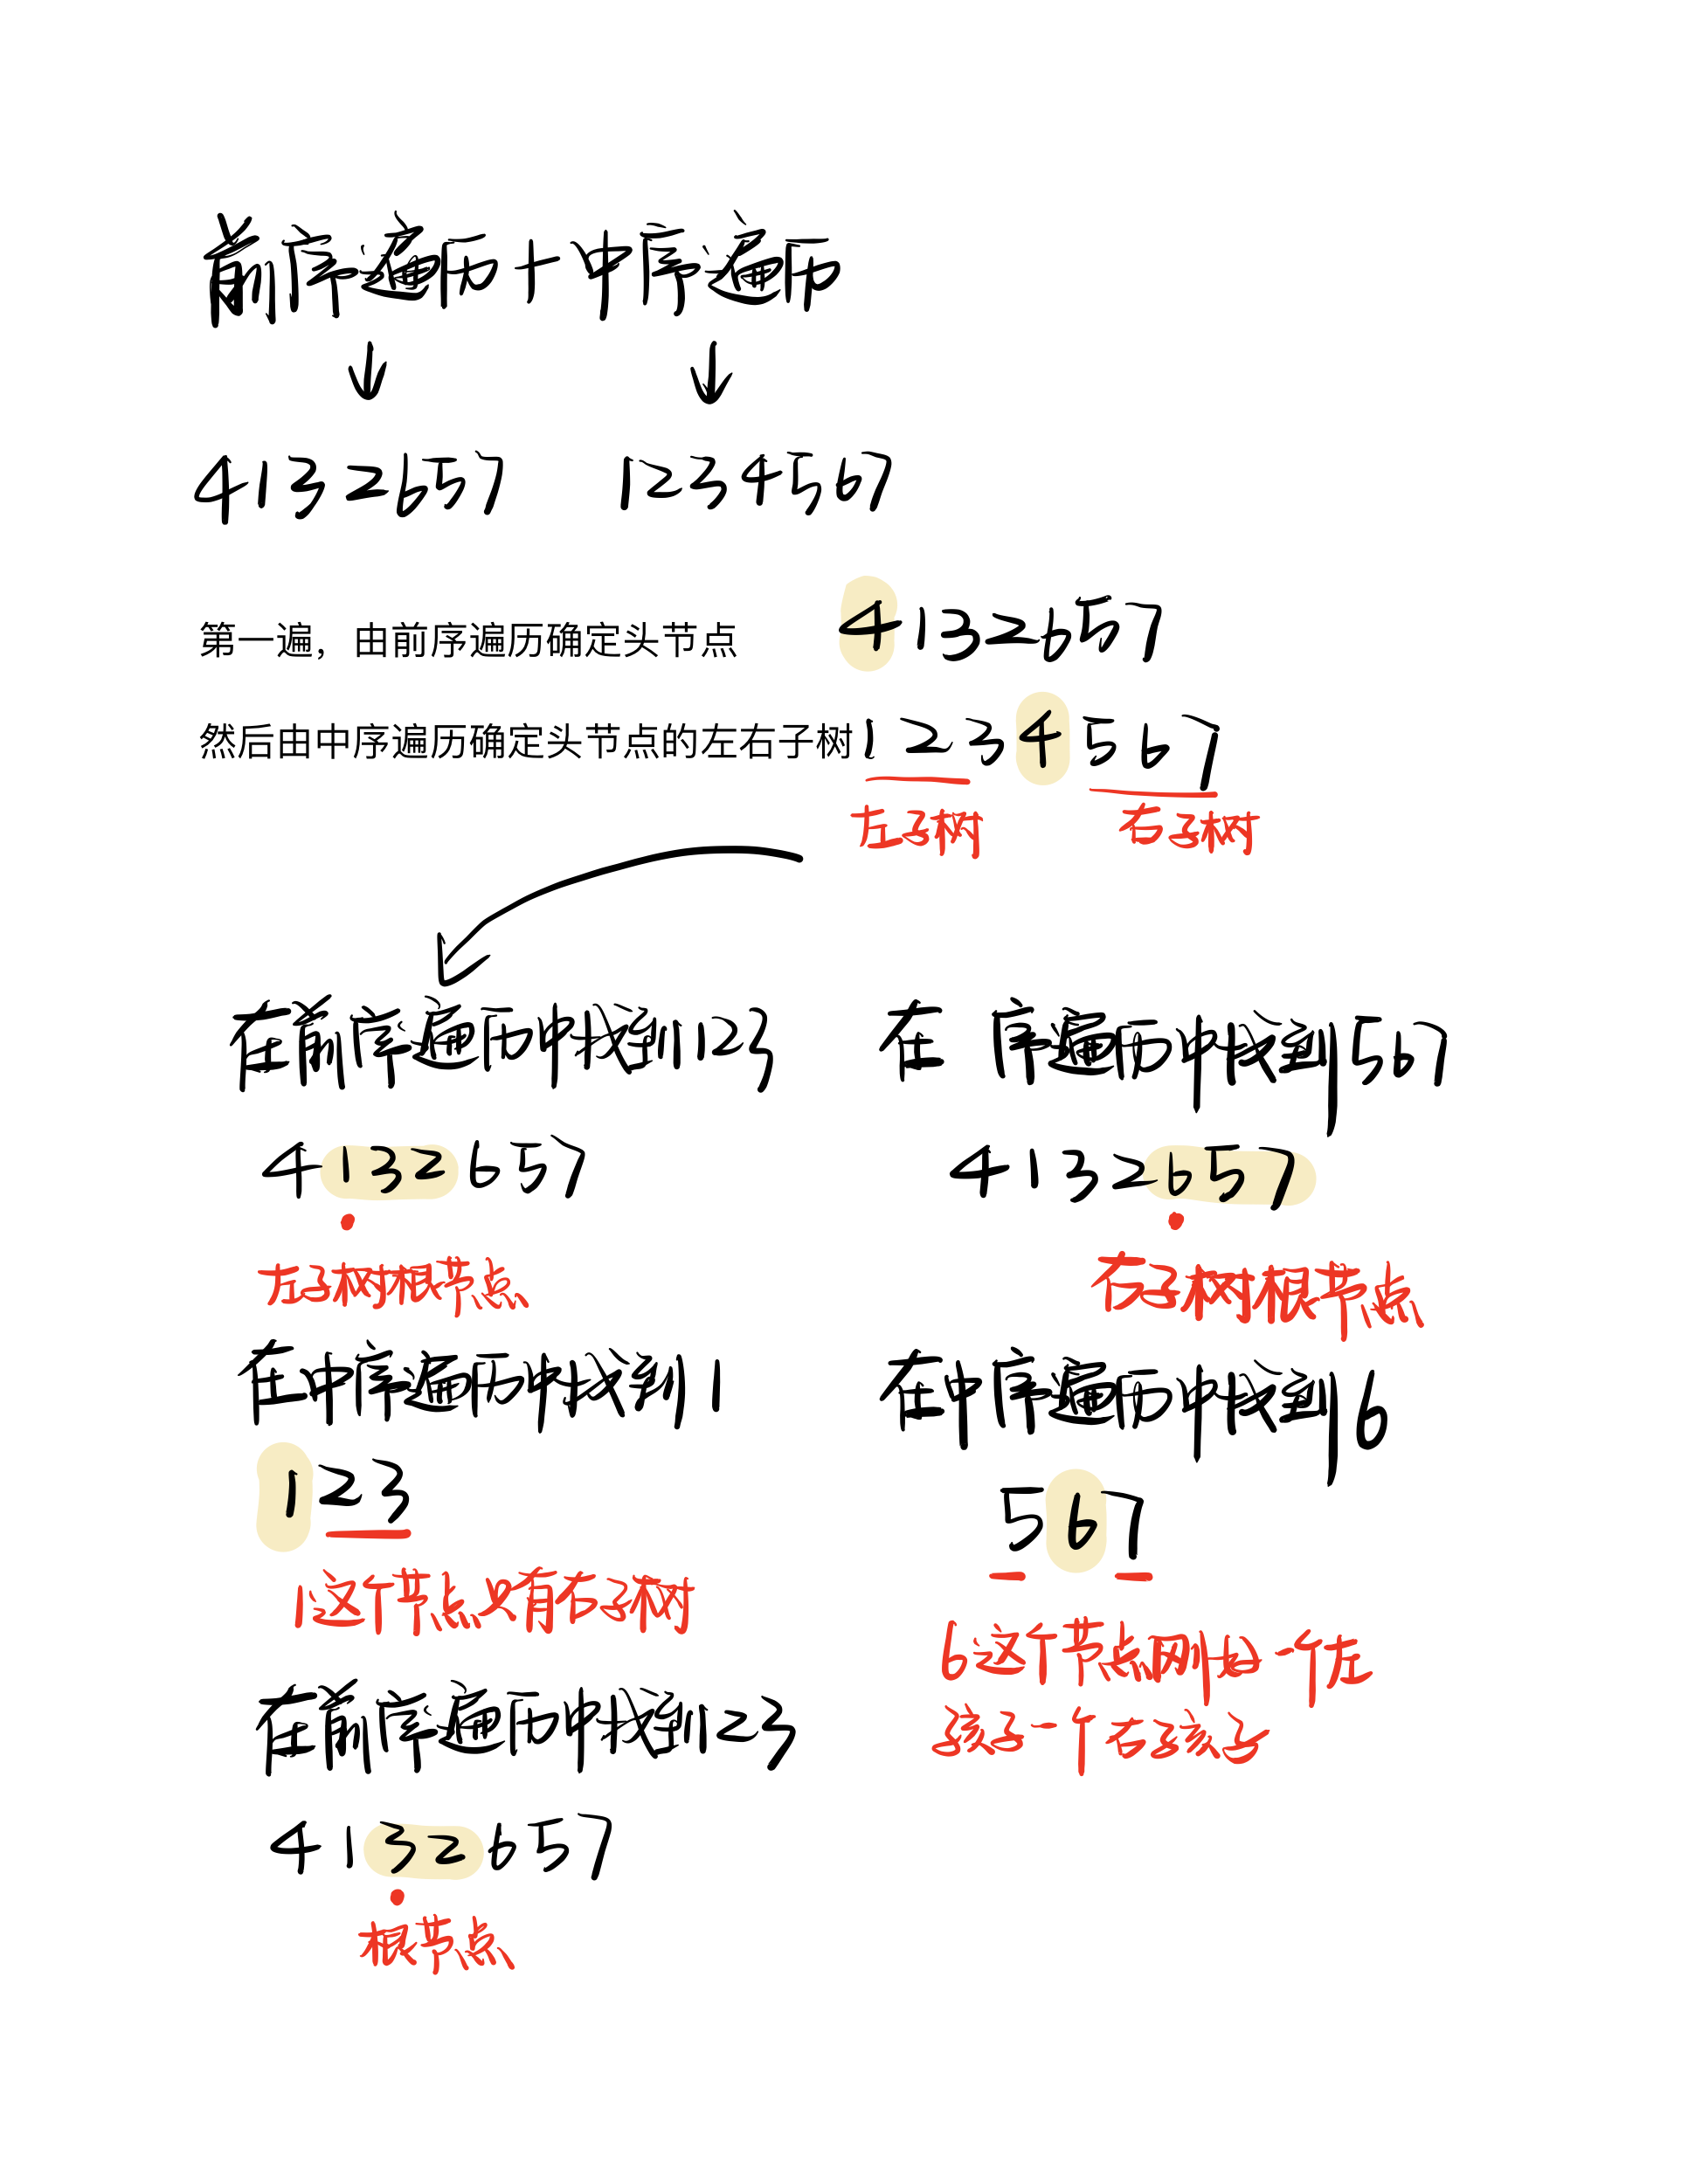 前序遍历+中序遍历
4132657 1234567
第一遍，由前序遍历确定头节点 4132657
然后由中序遍历确定头节点的左右子树 1234567
左子树 右子树
在前序遍历中找到123
4132657
左子树根节点
在中序遍历中找到1
123
1这个节点只有右子树
在前序遍历中找到123
4132657
根节点
在 序遍历中找到567
4132657
右子树根节点
在中序遍历中找到6
567
6这个节点刚好一个左
孩子一个右孩子